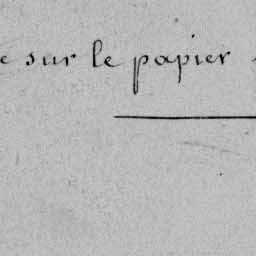 e sur le papier